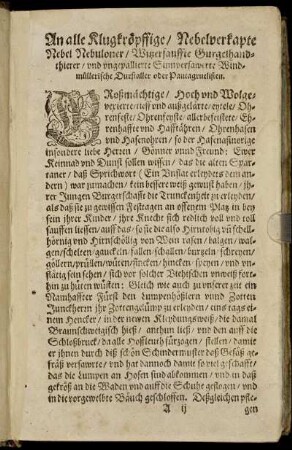 An alle Klugkröpffige / Nebelverkapte
Nebel Nebuloner / Witzersauffte Gurgelhand-
thierer / vnd vngepalliertе Sinnversauerte Wind-
müllerische Dürstaller oder Pantagruelisten.
GRoßmächtige / Hoch vnd Wolge-
vexierte tieff vnd außgelärte / eytele / Oh-
renfeste / Ohrenfeyste / allerbefeistete / Eh-
renhaffte vnd Hafftähren / Ohrenhasen
vnd Hasenohren / so der Hasenasinorige
insondere liebe Herrn / Gönner vnnd Freund: Ewer
Keinnad vnd Dunst sollen wissen / das die alten Spar-
taner / daß Sprichwort (Ein Vnflat erleydets dem an-
dern) war zumachen / kein bessere weiß gewust haben / jh-
rer Jungen Burgerschafft die Trunckenheit zu erleyden /
als daß sie zu gewissen Festtagen an offenem Platz in bey-
sein jhrer Kinder / jhre Knecht sich redlich voll vnd toll
sauffen liessen / auff das / so sie die also Hirntobig vn schell-
hörnig vnd Hirnschöllig von Wein rasen / balgen / wal-
gen / schelten / gauckeln / fallen / schallen / burzeln / schreyen /
göllern / prüllen / wüten / stincken / sincken / speyen / vnd vn-
flätig sein sehen / sich vor solcher Viehischen vnweiß fort-
hin zu hüten wüsten: Gleich wie auch zu vnserer zeit ein
Namhaffter Fürst den Lumpenhößlern vnnd Zotten
Junckherrn jhr Zottengelümp zu erleyden / eins tags ei-
nem Hencker / in der newen Kleydung weiß / die damal
Braunschweigisch hieß / anthun ließ / vnd den auff die
Schloßbruck / da alle Hoffleuth fürzogen / stellen / damit
er jhnen durch diß schön Schindermuster daß Gesäß ge-
fräß versawrte / vnd hat dannoch damit so viel geschafft /
das die Lumpen an Hosen sind abkommen / vnd in daß
gekröß an die Waden vnd auff die Schuhe geflogen / vnd
in die vorgewelbte Bäuch geschloffen. Deßgleichen pfle-
A ij gen